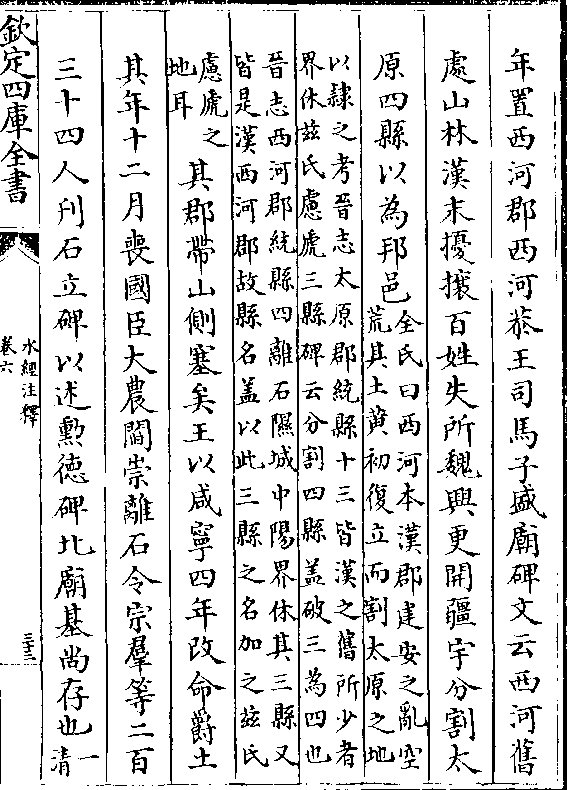 年置西河郡西河㳟王司馬子盛廟碑文云西河舊
處山林漢末擾攘百姓失所魏興更開疆宇分割太
原四縣以為邦邑全氏曰西河本漢郡建安之亂空
荒其土黄初復立而割太原之地
以隸之考晉志太原郡統縣十三皆漢之舊所少者
界休兹氏慮虒三縣碑云分割四縣盖破三為四也
晉志西河郡統縣四離石隰城中陽界休其三縣又
皆是漢西河郡故縣名盖以此三縣之名加之兹氏
慮虒之
地耳
其郡帶山側塞矣王以咸寧四年改命爵土
其年十二月喪國臣大農閻崇離石令宗羣等二百
三十四人刋石立碑以述勲徳碑北廟基尚存也一
清
欽定四庫全書
水經注釋
卷六
三十三